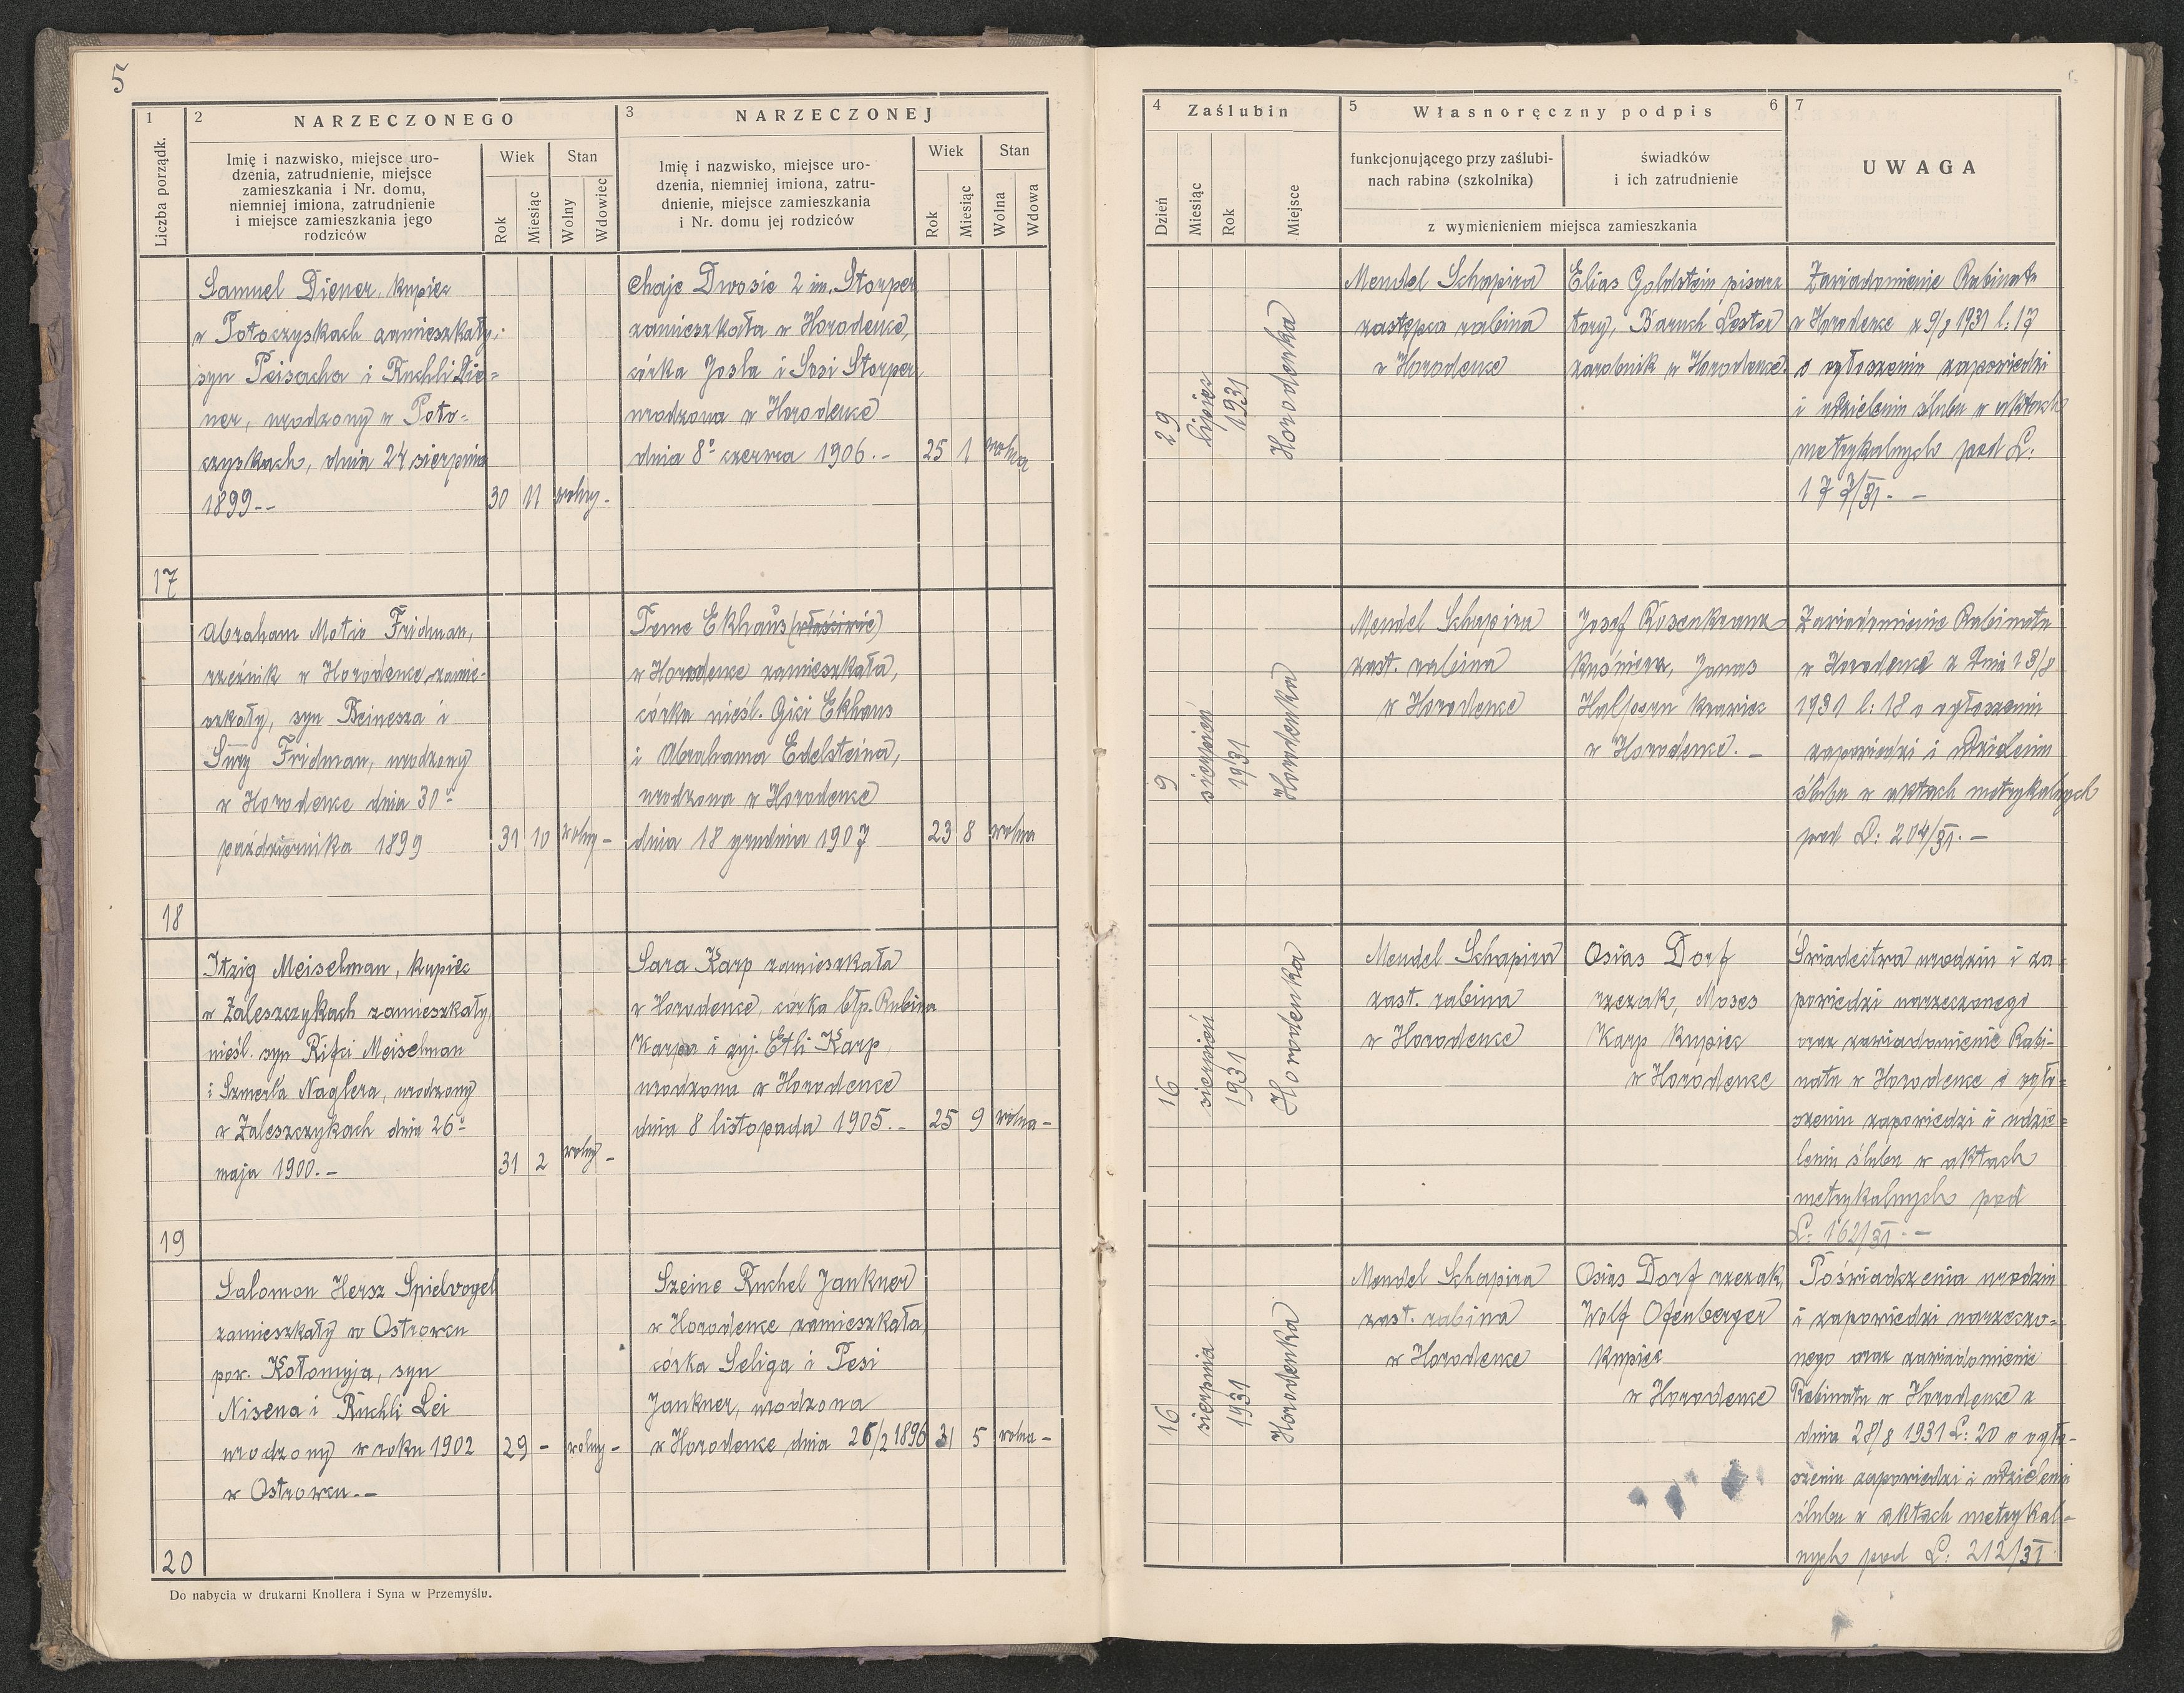 5
1
Liczba porządk.
2 NARZECZONEGO
Imię i nazwisko, miejsce uro-
dzenia, zatrudnienie, miejsce
zamieszkania i Nr. domu,
niemniej imiona, zatrudnienie
i miejsce zamieszkania jego
rodziców
Wiek
Rok
Miesiąc
Stan
Wolny
Wdowiec
3 NARZECZONEJ
Imię i nazwisko, miejsce uro-
dzenia, niemniej imiona, zatru-
dnienie, miejsce zamieszkania
i Nr. domu jej rodziców
Wiek
Rok
Miesiąc
Stan
Wolna
Wdowa
4 Zaślubin
Dzień
Miesiąc
Rok
Miejsce
5 Własnoręczny podpis 6
funkcjonującego przy zaślubi-
nach rabina (szkolnika)
świadków
i ich zatrudnienie
z wymienieniem miejsca zamieszkania
7
UWAGA
17
Samuel Diener, kupiec
w Potoczyskach zamieszkały,
syn Peisacha i Ruchli Die=
ner, urodzony w Poto=
czyskach, dnia 24 sierpnia
1899--
30 11 wolny-
Chaje Dwosie 2 im. Storper
zamieszkała w Horodence,
córka Josla i Sosi Storper,
urodzona w Horodence
dnia 8º czerwca 1906.-
25 1 wolna
29
lipiec
1931
Horodenka
Mendel Schapira
zastępca rabina
w Horodence
Elias Goldstein pisarz
tory, Baruch Lester
zarobnik w Horodence.
Zawiadomienie Rabinatu
w Horodence z 9/8 1931 l: 17
o ogłoszeniu zapowiedzi
i udzieleniu ślubu w aktach
metrykalnych pod L.
177/31.-
18
Abraham Motio Fridman,
rzeźnik w Horodence zamie-
szkały, syn Beinesza i
Sury Fridman, urodzony
w Horodence dnia 30º
października 1899
31 10 wolny-
Teme Ekhaus (właściwie)
w Horodence zamieszkała,
córka nieśl. Gici Ekhaus
i Abrahama Edelsteina,
urodzona w Horodence
dnia 18 grudnia 1907
23 8 wolna
9
sierpień
1931
Horodenka
Mendel Schapira
zast. rabina
w Horodence
Josef Rosenkranz
kuśnierz, Jonas
Halpern krawiec
w Horodence.-
Zawiadomienie Rabinatu
w Horodence z dnia 13/8
1931 l: 18 o ogłoszeniu
zapowiedzi i udzieleniu
ślubu w aktach metrykalnych
pod L: 204/31.-
19
Itzig Meiselman, kupiec
w Zaleszczykach zamieszkały,
nieśl. syn Rifki Meiselman
i Szmerla Naglera, urodzony
w Zaleszczykach dnia 26º
maja 1900.-
31 2 wolny-
Sara Karp zamieszkała
w Horodence, córka błp. Rubina
Karpa i żyj. Etli Karp,
urodzona w Horodence
dnia 8 listopada 1905.-
25 9 wolna-
16
sierpień
1931
Horodenka
Mendel Schapira
zast. rabina
w Horodence
Osias Dorf
rzezak, Moses
Karp kupiec
w Horodence
Świadectwa urodzin i za=
powiedzi narzeczonego
oraz zawiadomienie Rabi-
natu w Horodence o ogło=
szeniu zapowiedzi i udzie=
leniu ślubu w aktach
metrykalnych pod
L: 162/31.-
20
Salomon Hersz Spielvogel
zamieszkały w Ostrowcu
pow. Kołomyja, syn
Nisena i Ruchli Lei
urodzony w roku 1902
w Ostrowcu.-
29 - wolny-
Szeine Ruchel Jankner
w Horodence zamieszkała,
córka Seliga i Pesi
Jankner, urodzona
w Horodence dnia 26/2 1896
31 5 wolna-
16
sierpnia
1931
Horodenka
Mendel Schapira
zast. rabina
w Horodence
Osias Dorf rzezak,
Wolf Ofenberger
kupiec
w Horodence
Poświadczenia urodzin
i zapowiedzi narzeczo=
nego oraz zawiadomienie
Rabinatu w Horodence z
dnia 28/8 1931 L: 20 o ogło-
szeniu zapowiedzi i udzieleniu
ślubu w aktach metrykal-
nych pod L: 212/31
Do nabycia w drukarni Knollera i Syna w Przemyślu.